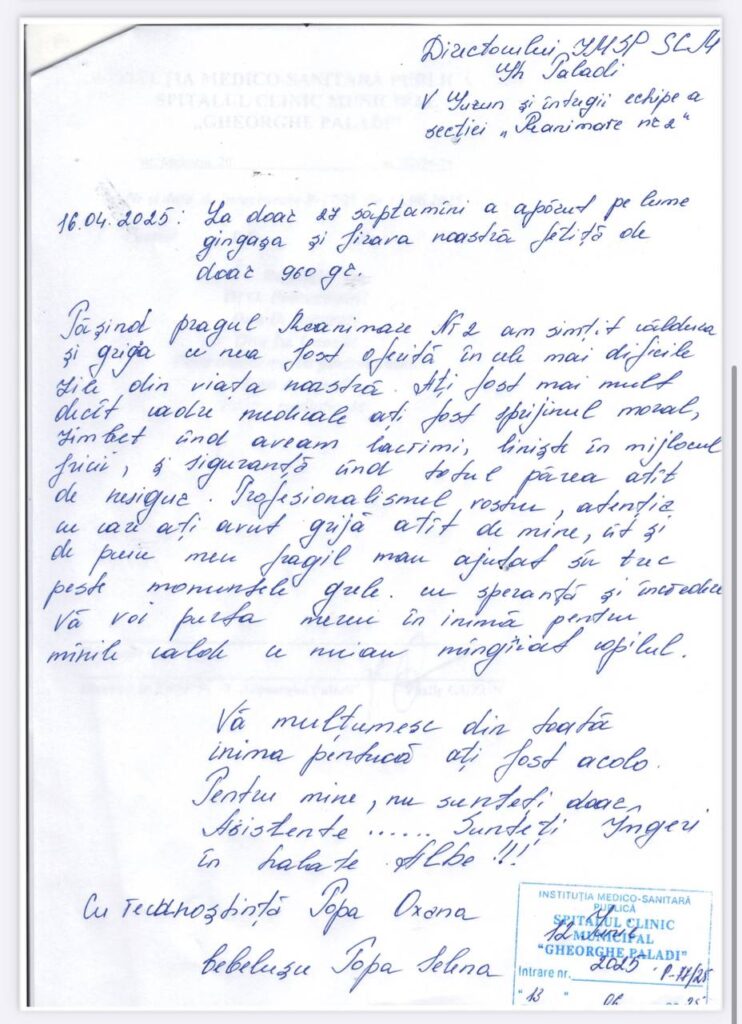 Directorului IMSP SCM
Gh Paladi
V. Țurun și întregii echipe a
secției „Reanimare nr. 2"
16.04.2025: La doar 27 săptamîni a apărut pe lume
gingașa și firava noastră fetiță de
doar 960 gr.
Pășind pragul Reanimare Nr 2 am simțit căldura
și grija ce nea fost oferită în cele mai dificile
zile din viața noastră. Ați fost mai mult
decît cadre medicale ați fost sprijinul moral,
zîmbet cînd aveam lacrimi, liniște în mijlocul
fricii, și siguranță cînd totul părea atît
de nesigur. Profesionalismul vostru, atenția
cu care ați avut grijă atît de mine, cît și
de puiu meu fragil mau ajutat să trec
peste momentele grele. cu speranță și încredere
Vă voi purta mereu în inimă pentru
mînile calde ce miau mîngîiat copilul.
Vă mulțumesc din toată
inima pentrucă ați fost acolo.
Pentru mine, nu sunteți doar
Asistente ...... Sunteți Îngeri
în halate Albe !!!
Cu recunoștință Popa Oxana
bebelușu Popa Selena
INSTITUȚIA MEDICO-SANITARĂ
PUBLICĂ
SPITALUL CLINIC
MUNICIPAL
"GHEORGHE PALADI"
12 Iunie
2025
Intrare nr. P-77/25
" 13 " 06 25